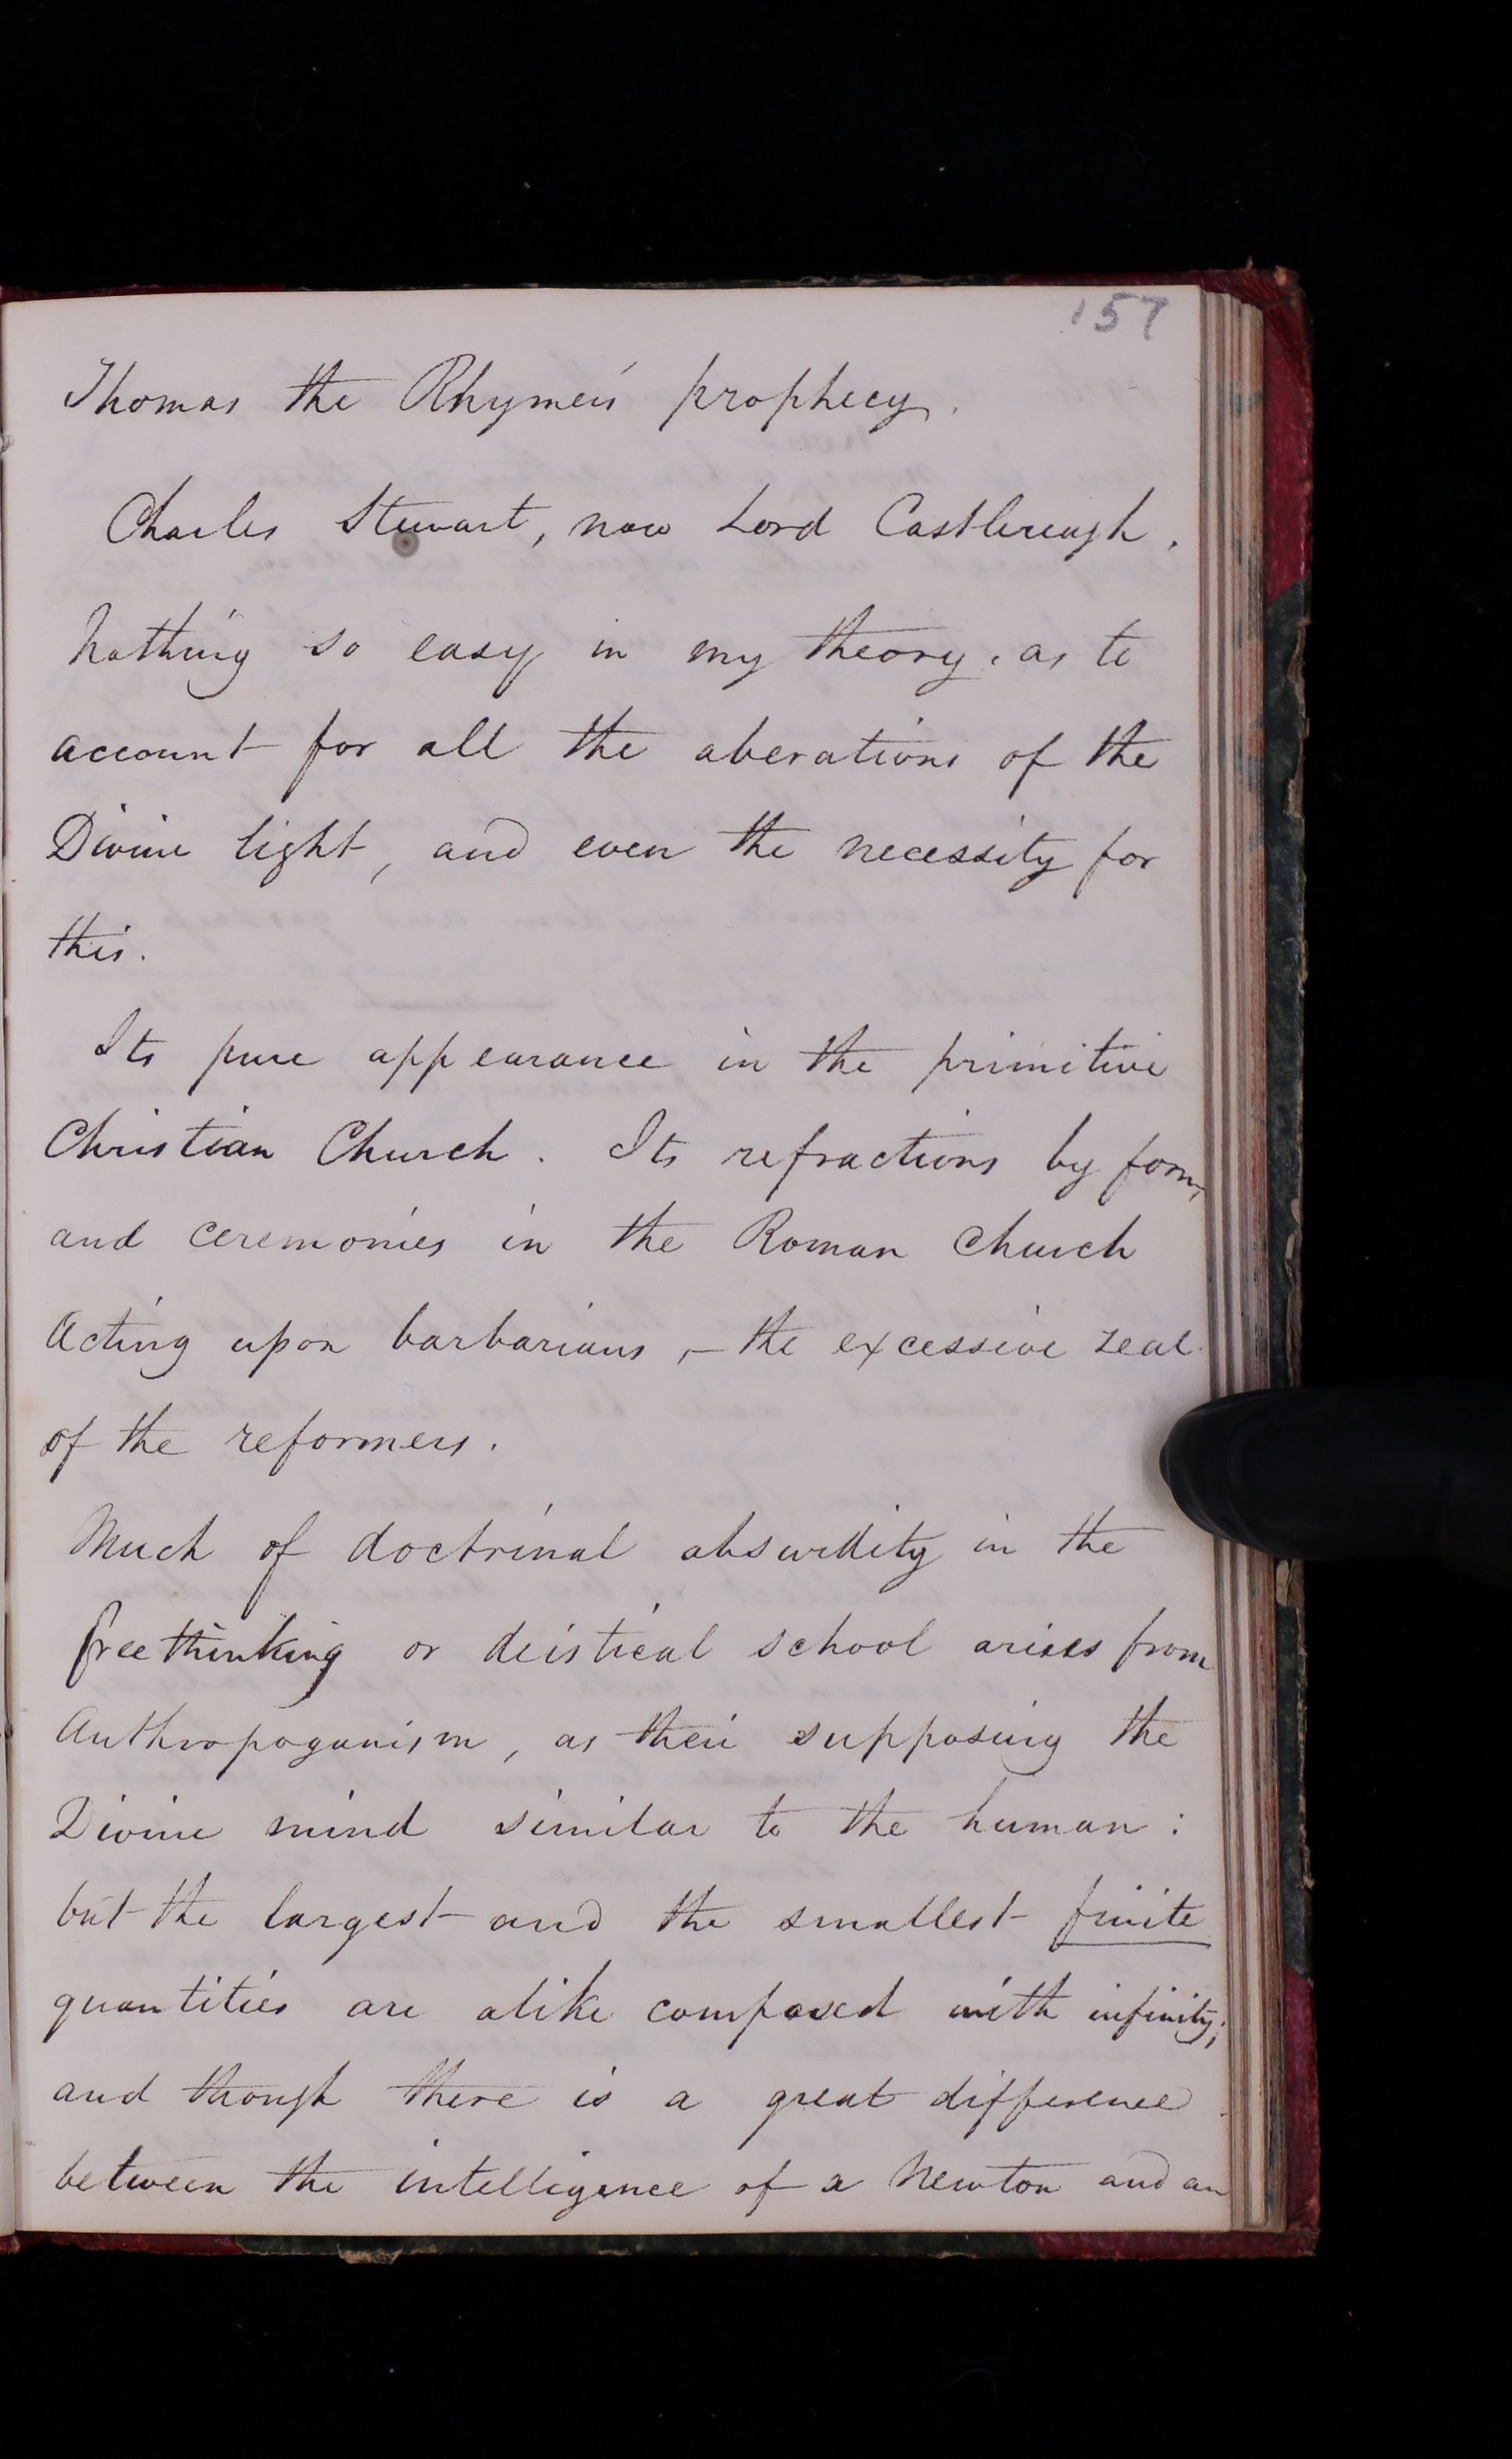 157
Thomas the Rhymer's prophecy.
Charles Stewart, now Lord Castlereagh.
Nothing so easy in my theory, as to
account for all the aberations of the
Divine light, and even the necessity for
this.
Its pure appearance in the primitive
Christian Church. Its refractions by forms
and ceremonies in the Roman Church
Acting upon barbarians, – the excessive zeal
of the reformers.
Much of doctrinal absurdity in the
freethinking or deistical school arises from
Anthropoganism, as their supposing the
Divine mind similar to the human:
but the largest and the smallest finite
quantities are alike composed with infinity;
and though there is a great difference
between the intelligence of a Newton and an